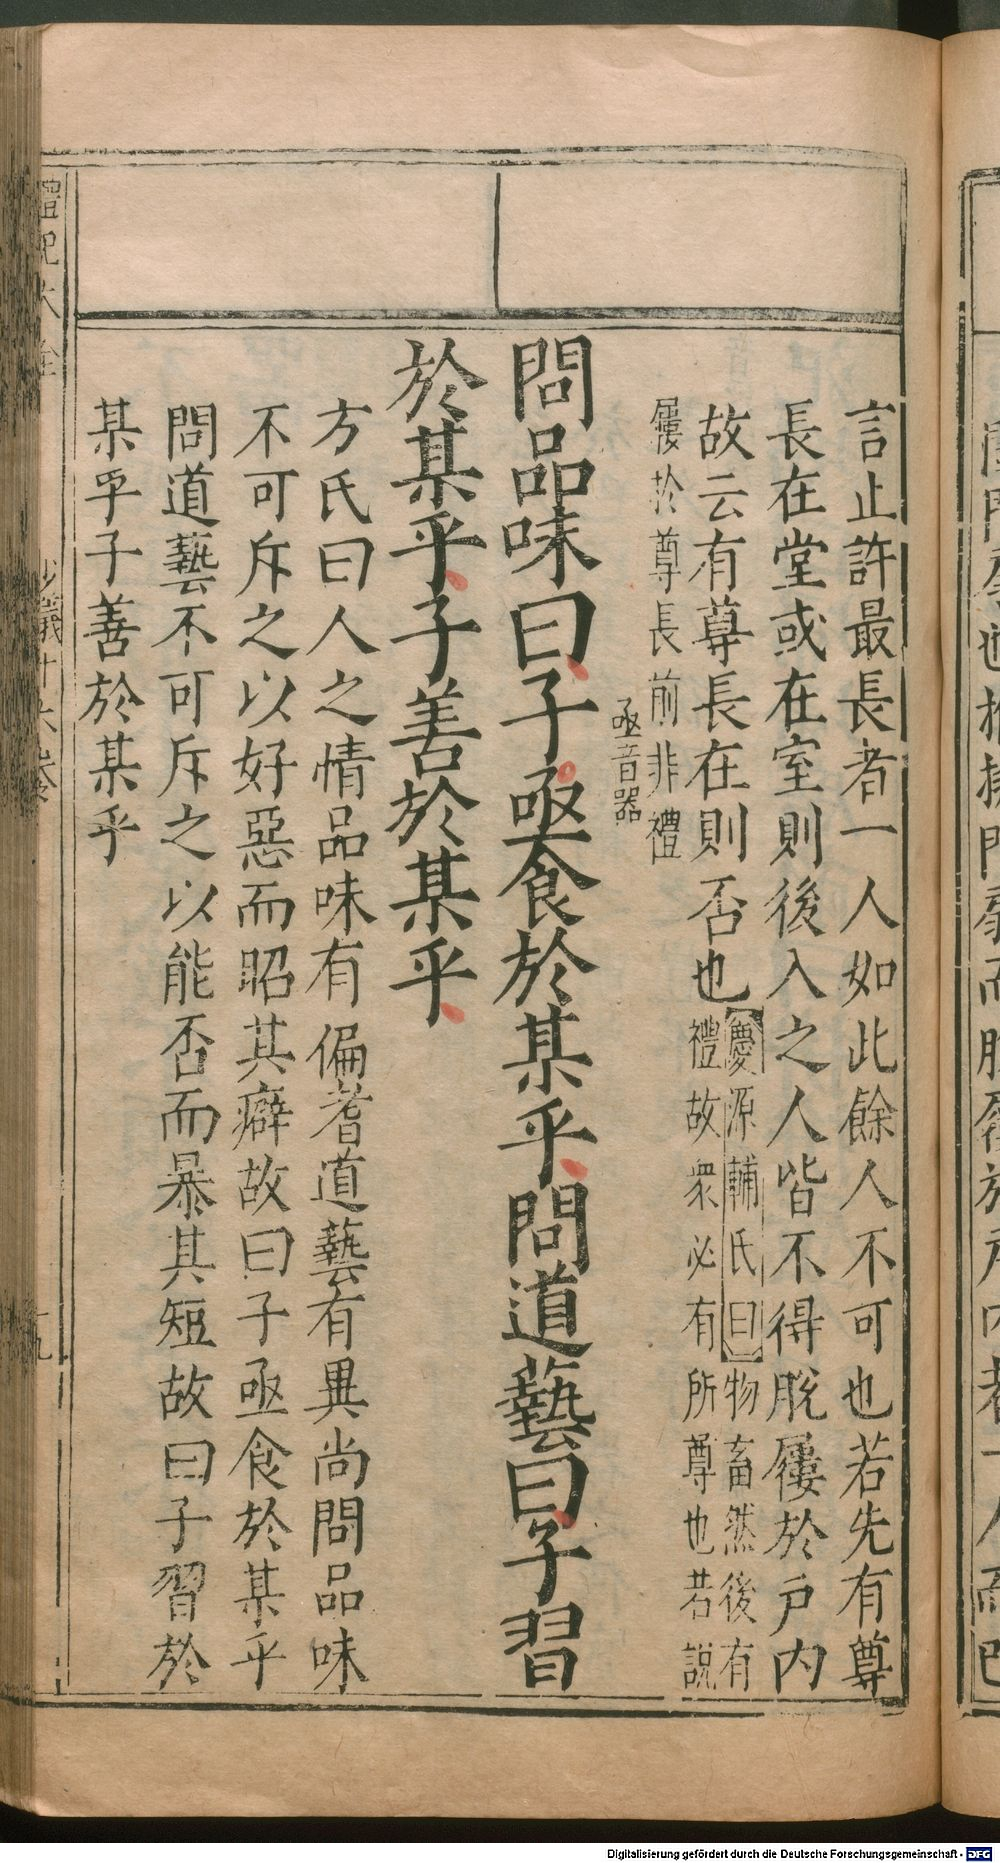 言止許最長者一人如此餘人不可也若先有尊
長在堂或在室則後入之人皆不得脫屨於戶內
故云有尊長在則否也慶源輔氏曰物畜然後有
禮故衆必有所尊也若說
屨於尊長前非禮
亟音器
問品味曰子亟食於某乎問道藝曰子習
於某乎子善於某乎
方氏曰人之情品味有偏耆道藝有異尚問品味
不可斥之以好惡而昭其癖故曰子亟食於某乎
問道藝不可斥之以能否而暴其短故曰子習於
某乎子善於某乎
禮記大全
少儀十六卷
十九
Digitalisierung gefördert durch die Deutsche Forschungsgemeinschaft - DFG